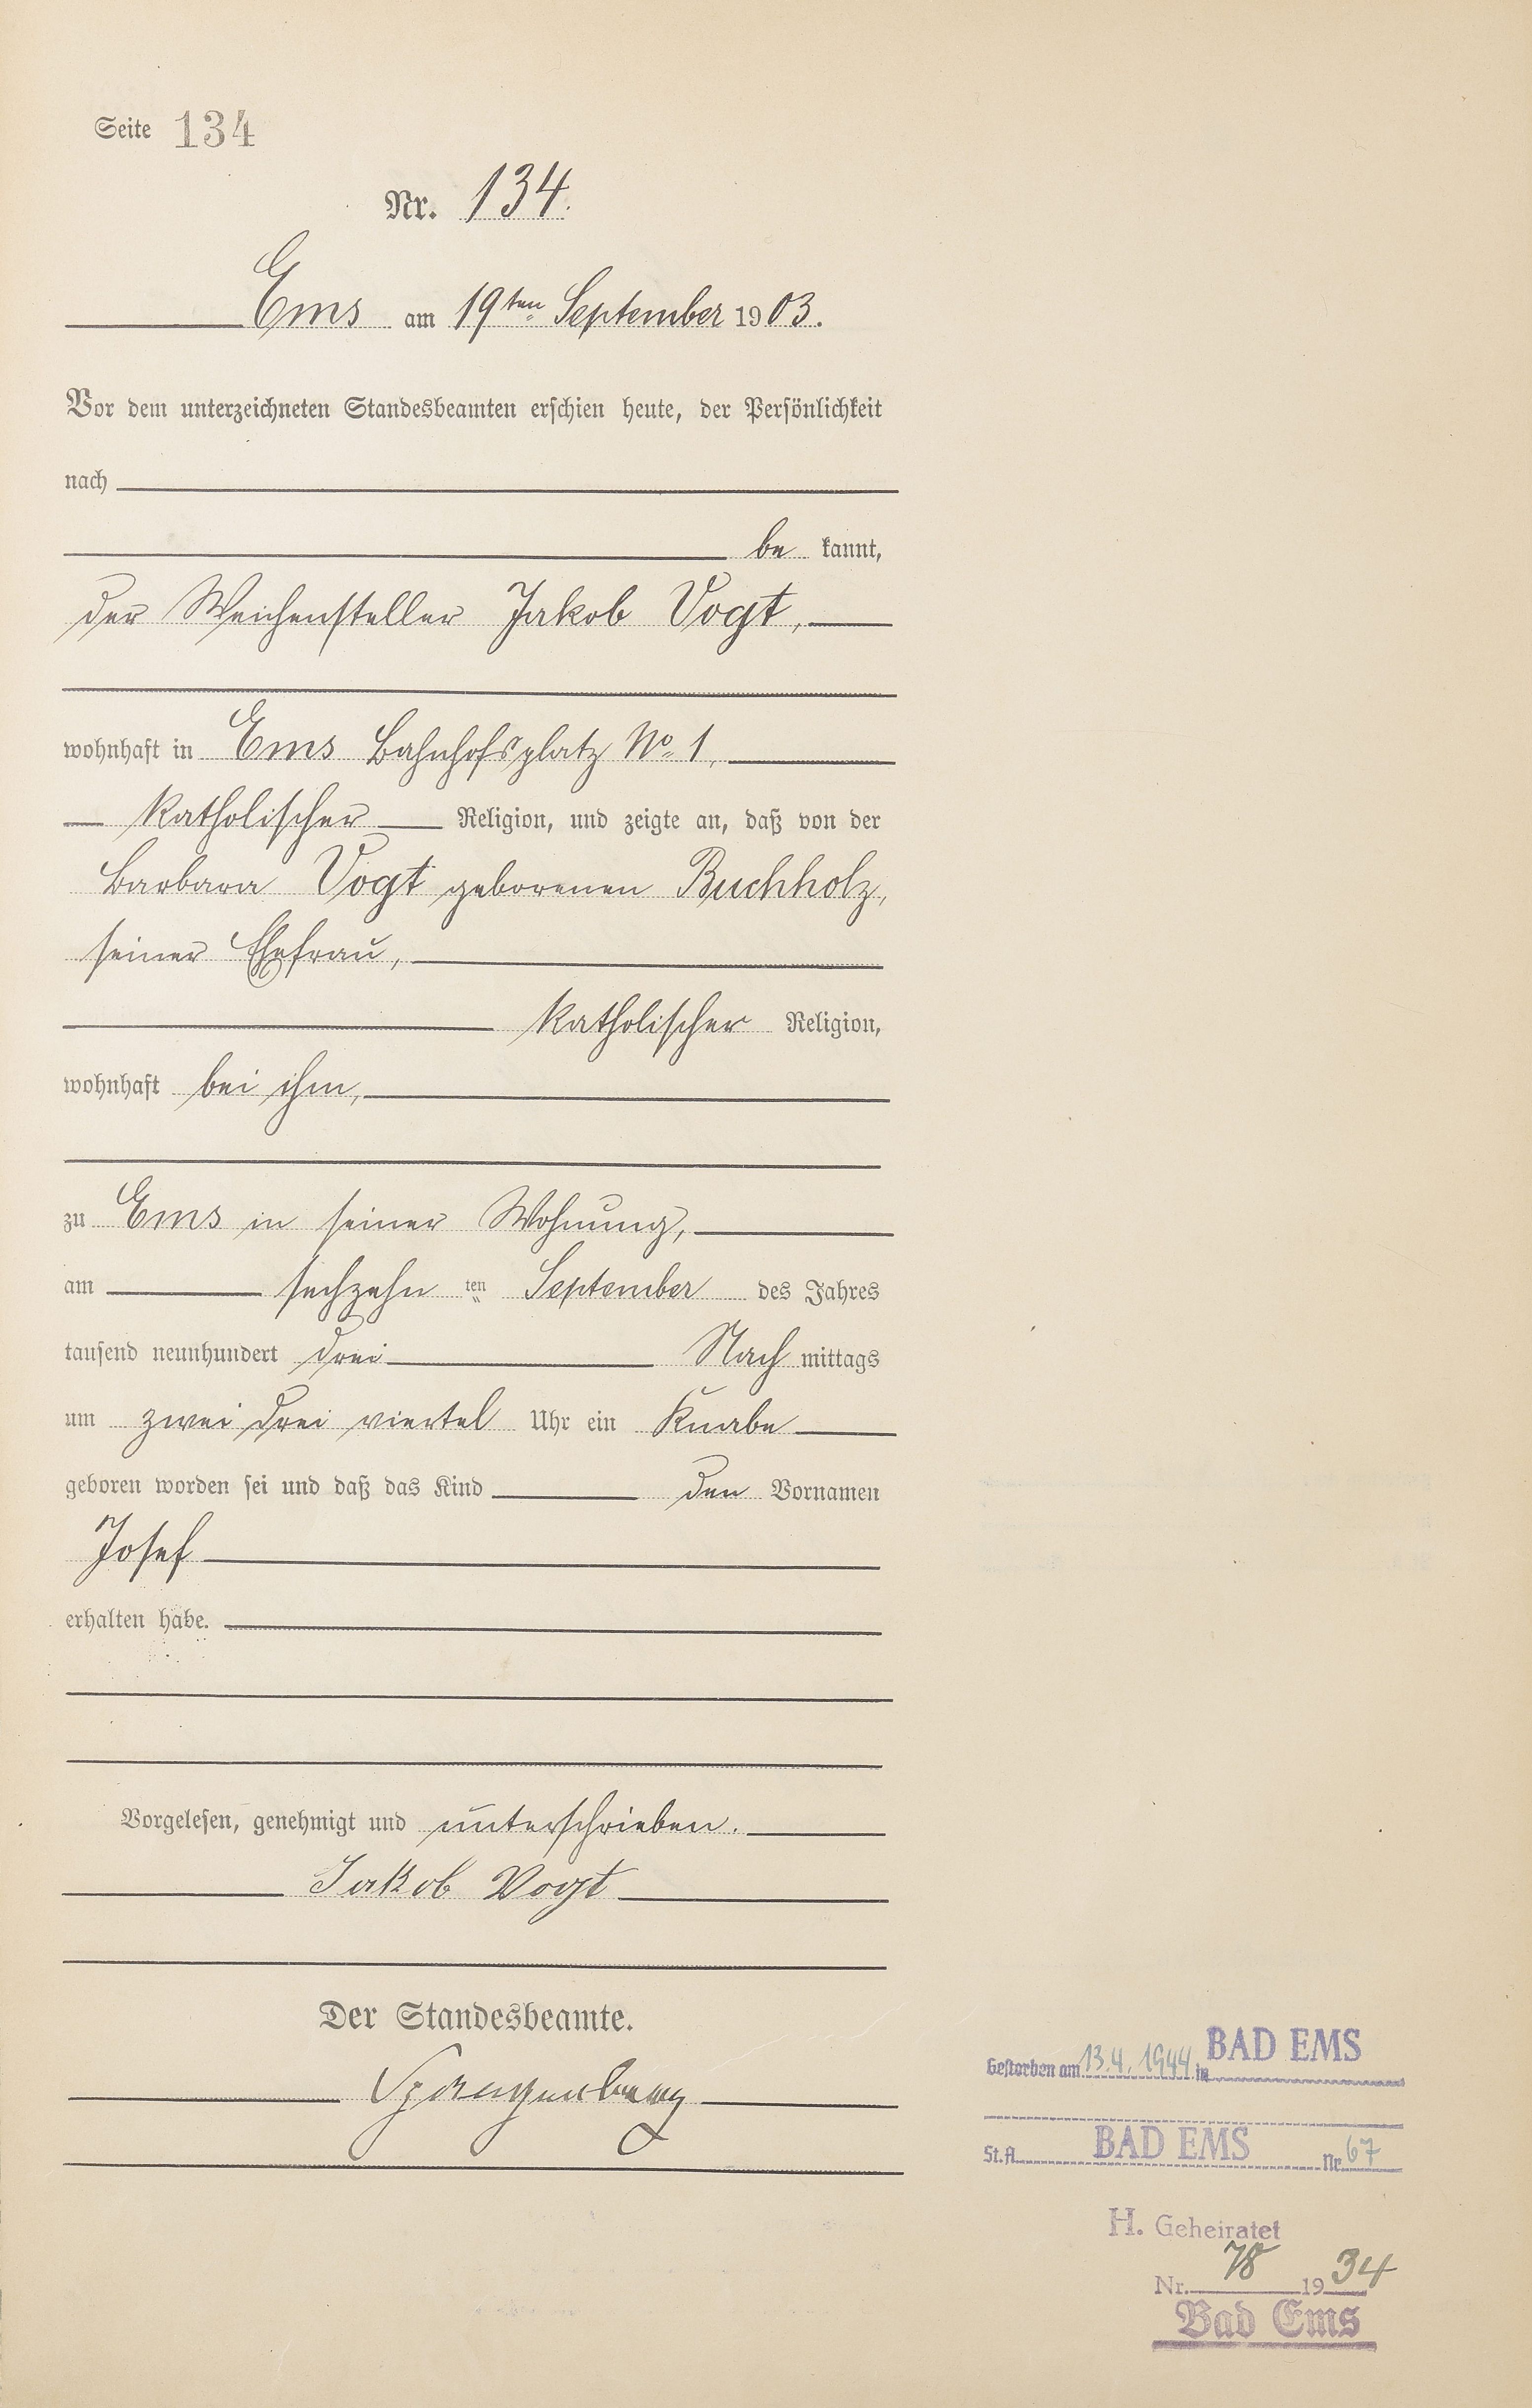 Seite 134
Nr. 134.
Ems am 19ten September 1903.
Vor dem unterzeichneten Standesbeamten erschien heute, der Persönlichkeit
nach
be kannt,
der Weichensteller Jakob Vogt,
wohnhaft in Ems Bahnhofsplatz No. 1,
katholischer Religion, und zeigte an, daß von der
Barbara Vogt geborenen Buchholz,
seiner Ehefrau,
katholischer Religion,
wohnhaft bei ihm,
zu Ems in seiner Wohnung,
am sechzehn ten September des Jahres
tausend neunhundert drei Nach mittags
um zwei drei viertel Uhr ein Knabe
geboren worden sei und daß das Kind den Vornamen
Josef
erhalten habe.
Vorgelesen, genehmigt und unterschrieben.
Jakob Vogt
Der Standesbeamte.
Spangenberg
Gestorben am 13.4.1944 in BAD EMS
St.A. BAD EMS Nr. 67
H. Geheiratet
Nr. 78 1934
Bad Ems